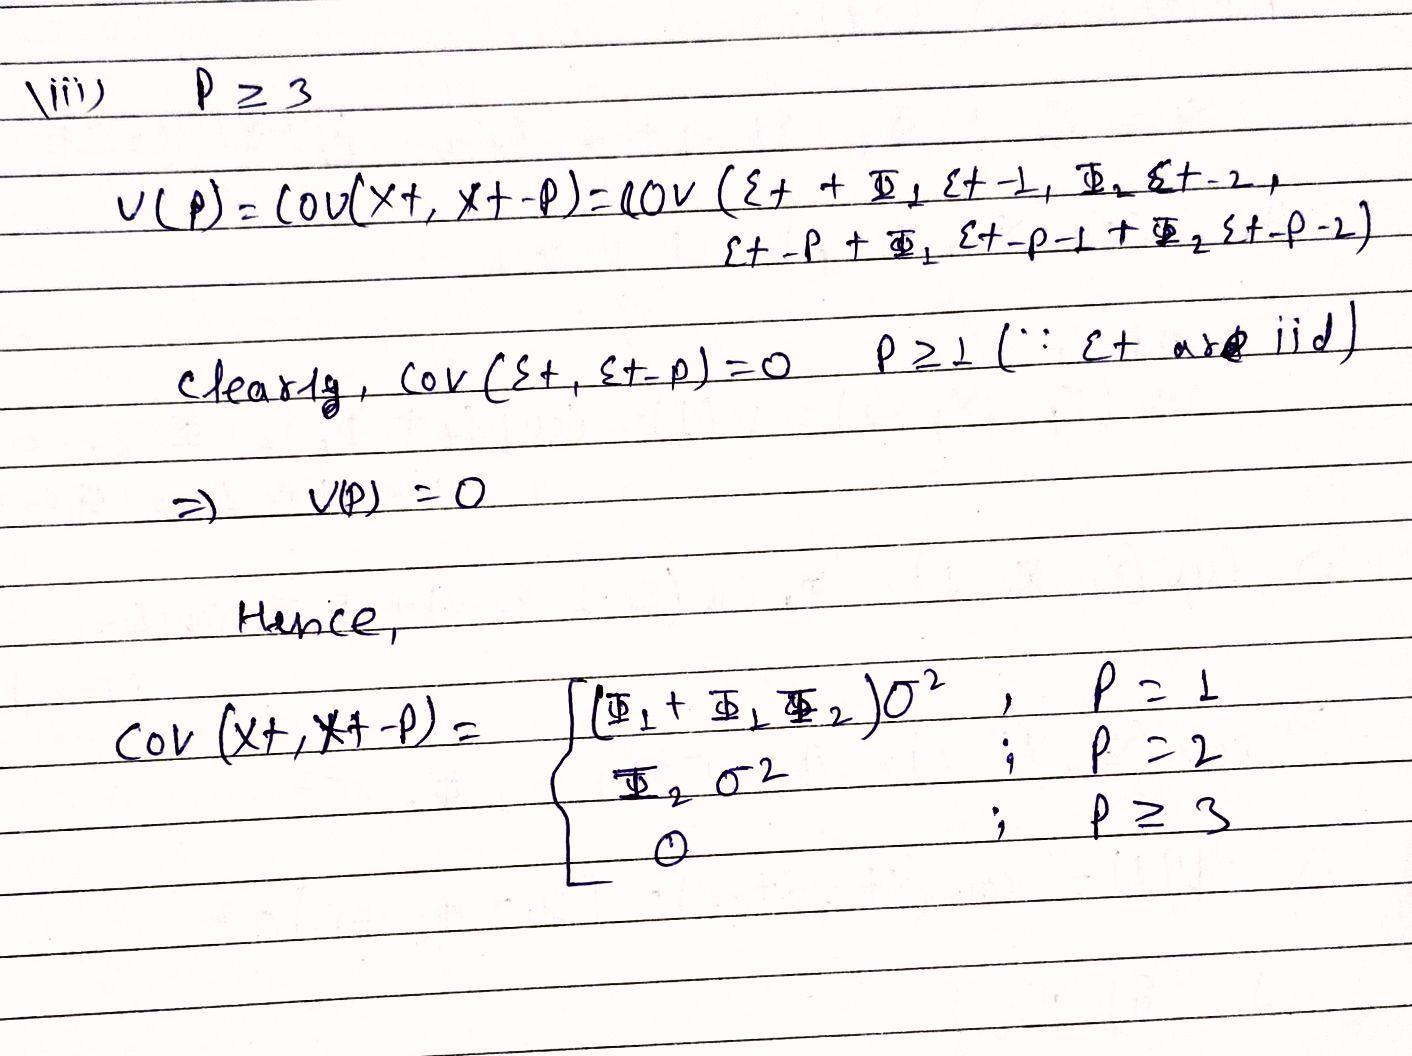 \iii) P ≥ 3
V(P) = COV(Xt, Xt-P) = COV (Ɛt + Φ₁ Ɛt-1, Φ₂ Ɛt-2,
Ɛt-P + Φ₁ Ɛt-P-1 + Φ₂ Ɛt-P-2)
Clearly, COV (Ɛt, Ɛt-P) = 0 P ≥ 1 (∵ Ɛt are iid)
⇒ V(P) = 0
Hence,
COV (Xt, Xt-P) = { (Φ₁ + Φ₁ Φ₂)σ² , P = 1
Φ₂ σ² ; P = 2
0 ; P ≥ 3